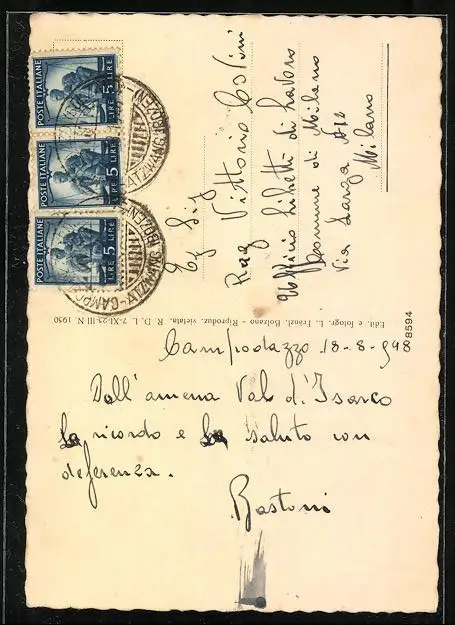 POSTE ITALIANE
LIRE 5 LIRE
POSTE ITALIANE
LIRE 5 LIRE
POSTE ITALIANE
LIRE 5 LIRE
ATZWANG (BOZEN)
CAMPO ATZWANG (BOZEN)
Rag Vittorio
Ufficio Libretti di Lavoro
Comune di Milano
Via Larga
Milano
8594
Edit. e fotogr. L. Fränzl, Bolzano - Riproduz. vietata. R. D. L. 7-XI-25-III N. 1950
Campodazzo 18-8-948
Dall'amena Val d'Isarco
La ricordo e La saluto con
deferenza.
Bastoni